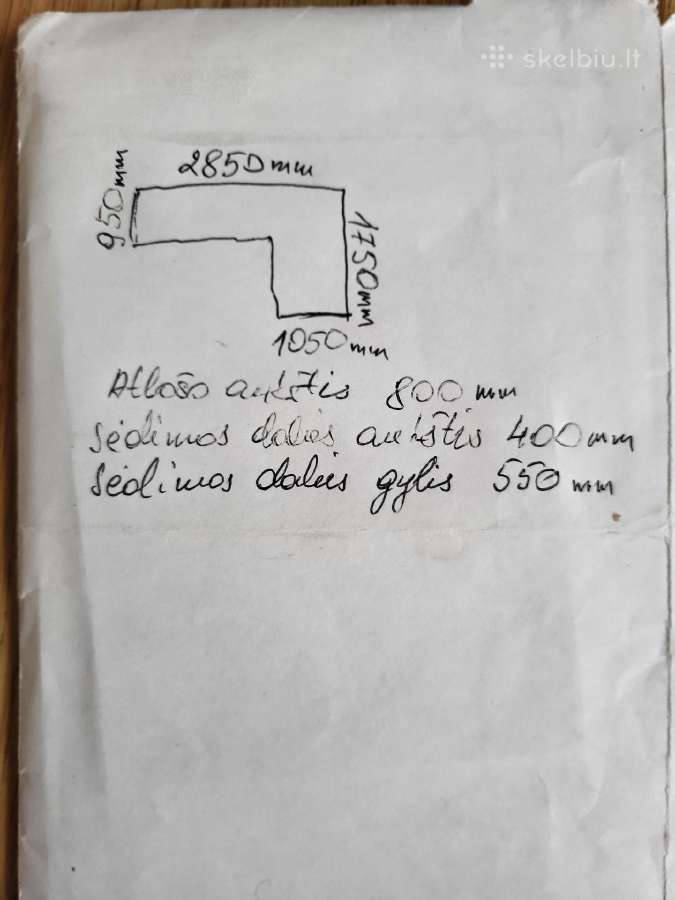 skelbiu.lt
2850mm
950mm
1750mm
1050mm
Atlošo aukštis 800mm
Sėdimos dalies aukštis 400mm
Sėdimos dalies gylis 550mm